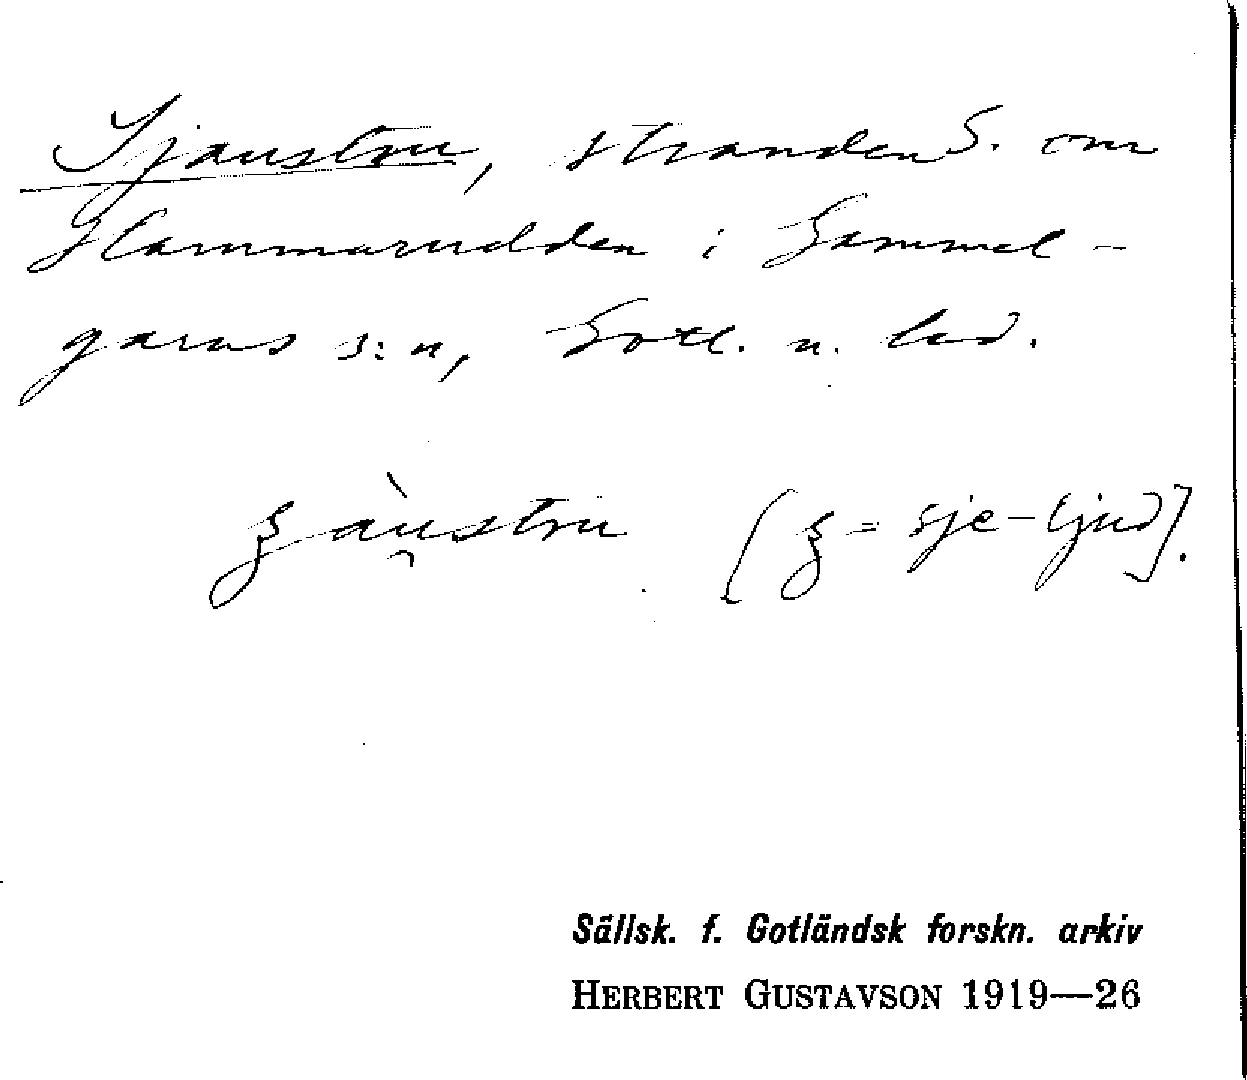 Sjaustru, stranden S. om
Hammarudden i Gammel-
garns s:n, Gotl. n. hd.
ʒàu̯stru [ʒ = sje-ljud].
Sällsk. f. Gotländsk forskn. arkiv
HERBERT GUSTAVSON 1919—26